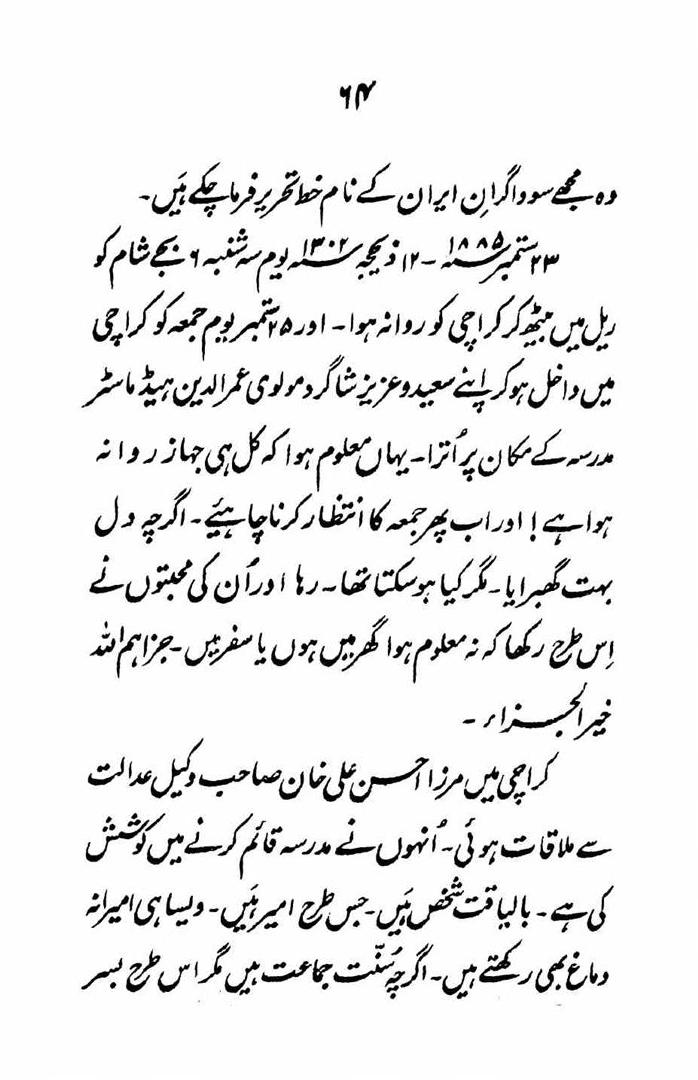 ۶۴
وہ مجھے سوداگرانِ ایران کے نام خط تحریر فرما چکے ہَیں۔
۲۳ ستمبر ۱۸۸۵ء ۔ ۱۲ ذیحجہ ۱۳۰۲ھ یوم سہ شنبہ ۶ بجے شام کو
ریل میں بیٹھ کر کراچی کو روانہ ہوا۔ اور ۲۵ ستمبر یوم جمعہ کو کراچی
میں داخل ہو کر اپنے سعید و عزیز شاگرد مولوی عمر الدین ہیڈ ماسٹر
مدرسہ کے مکان پر اُترا۔ یہاں معلوم ہوا کہ کل ہی جہاز روانہ
ہوا ہے! اور اب پھر جمعہ کا انتظار کرنا چاہیئے۔ اگرچہ دل
بہت گھبرایا۔ مگر کیا ہو سکتا تھا۔ رہا اور اُن کی محبتوں نے
اِس طرح رکھا کہ نہ معلوم ہوا گھر میں ہوں یا سفر میں۔ جزاہم اللہ
خیر الجزاء۔
کراچی میں مرزا احسن علی خان صاحب وکیل عدالت
سے ملاقات ہوئی۔ اُنہوں نے مدرسہ قائم کرنے میں کوشش
کی ہے۔ بالیاقت شخص ہَیں۔ جس طرح امیر ہَیں۔ ویسا ہی امیرانہ
دماغ بھی رکھتے ہیں۔ اگرچہ سُنّت جماعت ہیں مگر اس طرح بسر